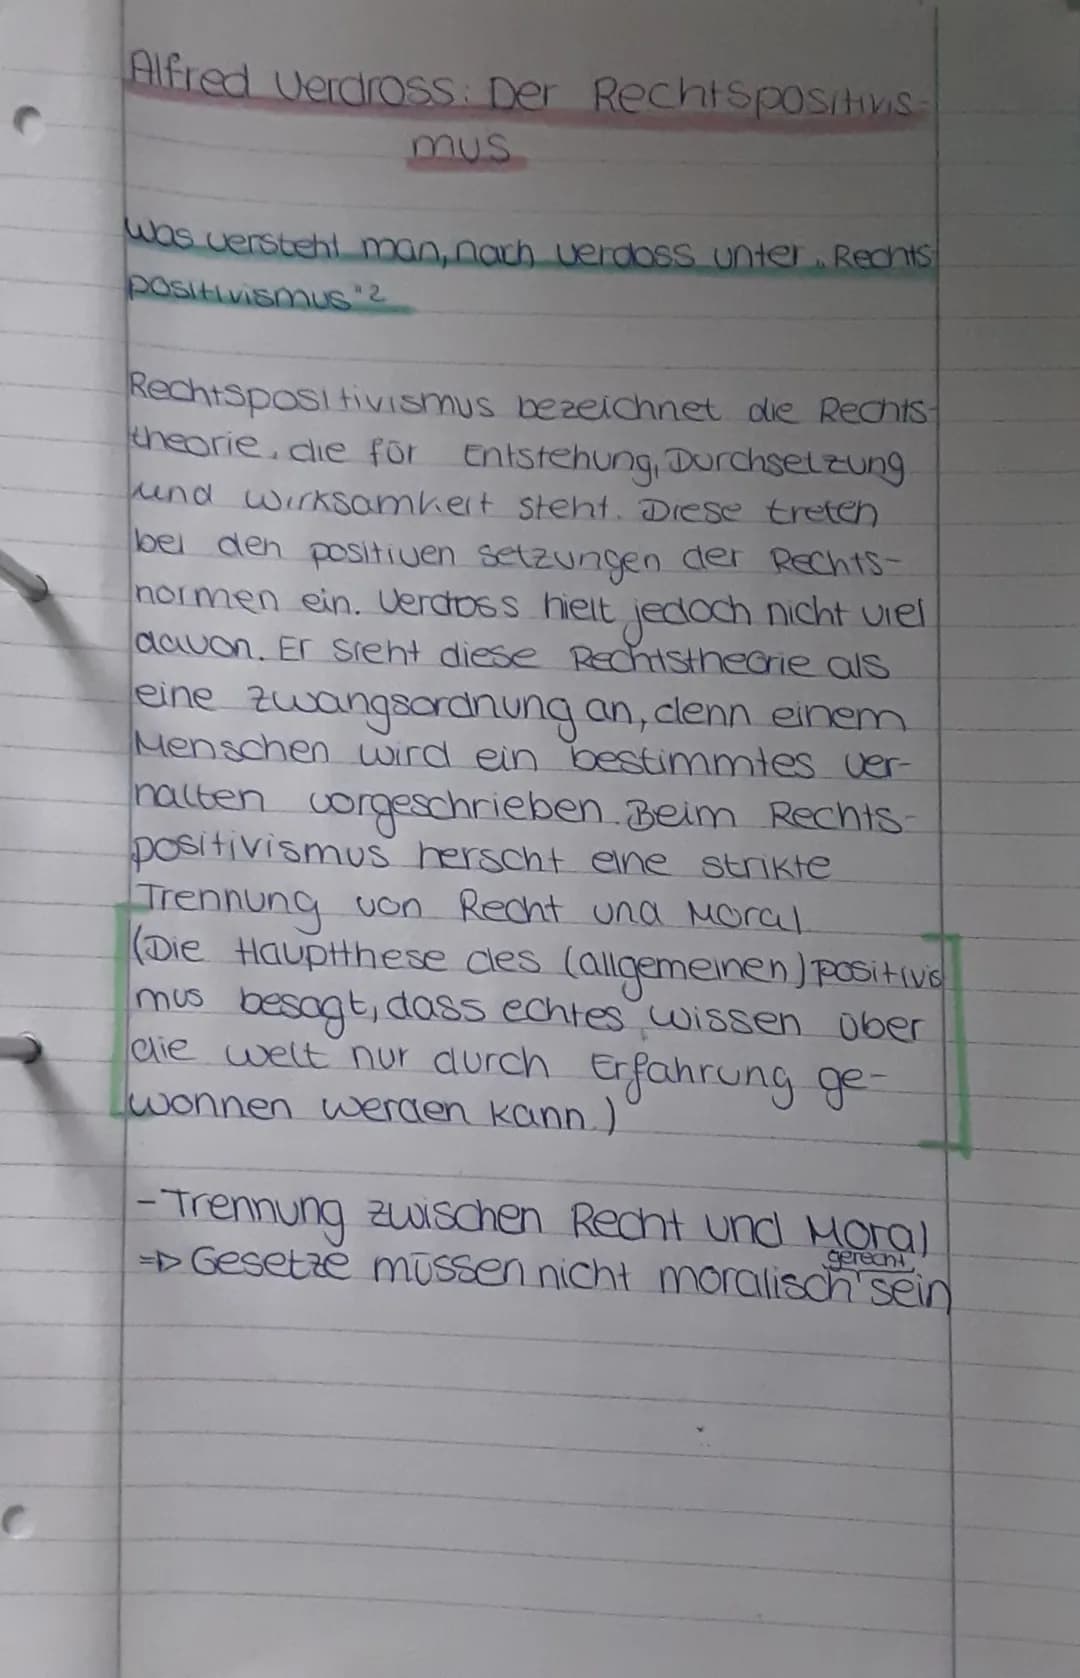 Alfred Verdross: Der Rechtspositivis-
mus
Was versteht man, nach Verdoss unter „Rechts-
positivismus"?
Rechtspositivismus bezeichnet die Rechts-
theorie, die für Entstehung, Durchsetzung
und Wirksamkeit steht. Diese treten
bei den positiven Setzungen der Rechts-
normen ein. Verdross hielt jedoch nicht viel
davon. Er sieht diese Rechtstheorie als
eine Zwangsordnung an, denn einem
Menschen wird ein bestimmtes Ver-
halten vorgeschrieben. Beim Rechts-
positivismus herscht eine strikte
Trennung von Recht und Moral
(Die Hauptthese des (allgemeinen) Positivis
mus besagt, dass echtes Wissen über
die Welt nur durch Erfahrung ge-
wonnen werden kann.)
- Trennung zwischen Recht und Moral
gerecht
=> Gesetze müssen nicht moralisch sein